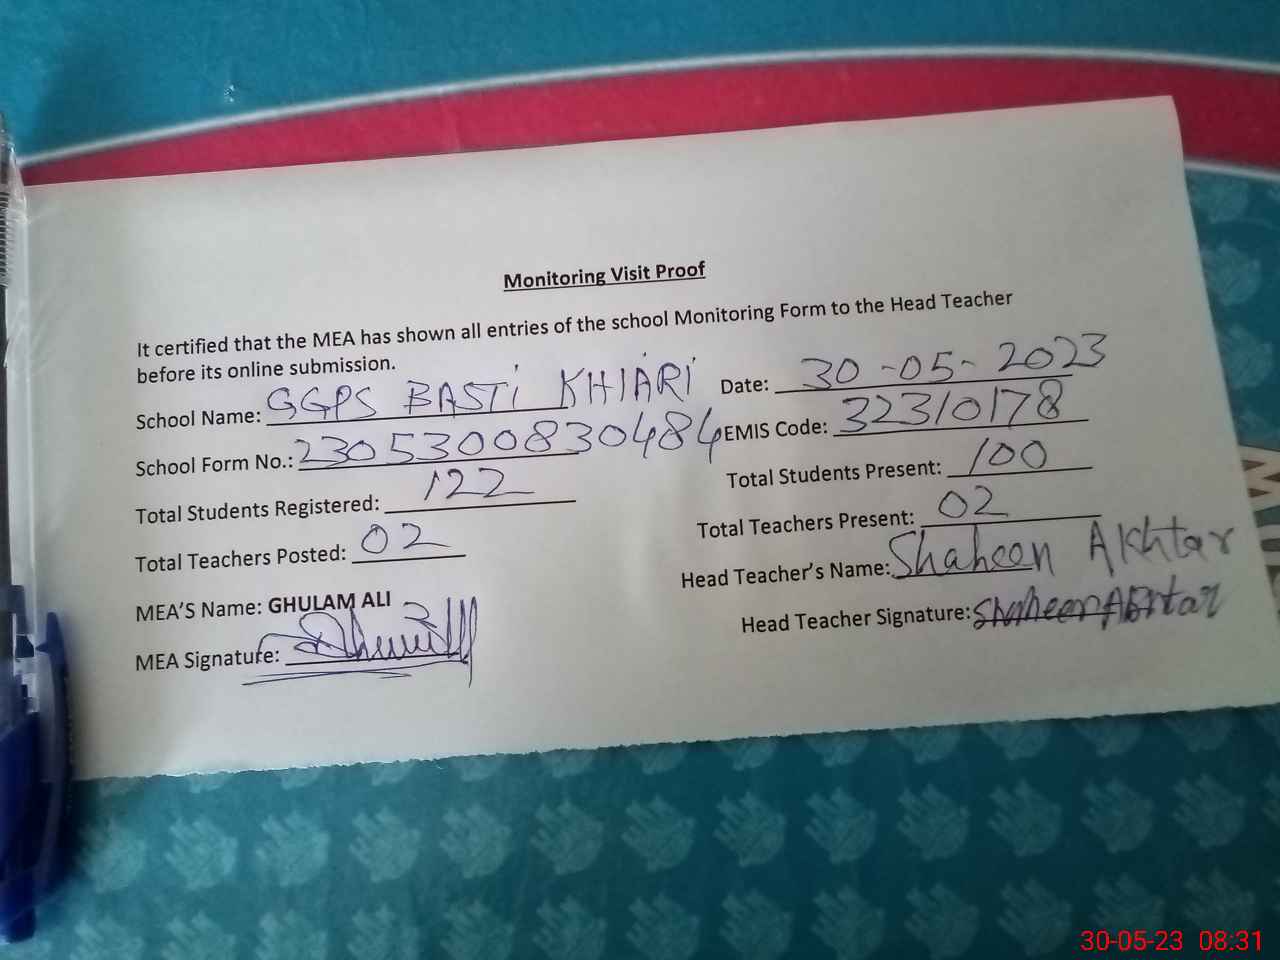 Monitoring Visit Proof
It certified that the MEA has shown all entries of the school Monitoring Form to the Head Teacher
before its online submission.
School Name: GGPS BASTI KHIARI Date: 30-05-2023
School Form No.: 2305300830484 EMIS Code: 32310178
Total Students Registered: 122 Total Students Present: 100
Total Teachers Posted: 02 Total Teachers Present: 02
MEA'S Name: GHULAM ALI Head Teacher's Name: Shaheen Akhtar
MEA Signature: Head Teacher Signature: Shaheen Akhtar
30-05-23 08:31